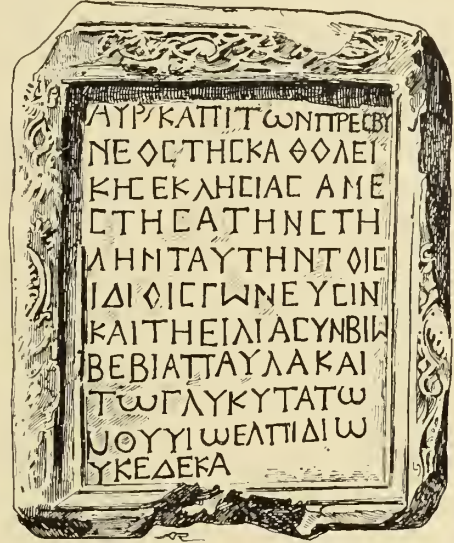 ΑΥΡϚΚΑΠΙΤωΝΠΡΕϹΒΥ
ΝΕΟϹΤΗϹΚΑΘΟΛΕΙ
ΚΗϹΕΚΛΗϹΙΑϹ ΑΜΕ
ϹΤΗϹΑΤΗΝϹΤΗ
ΛΗΝΤΑΥΤΗΝΤΟΙϹ
ΙΔΙΟΙϹΓωΝΕΥϹΙΝ
ΚΑΙΤΗΕΙΛΙΑϹΥΝΒΙω
ΒΕΒΙΑΠΑΥΛΑΚΑΙ
ΤωΓΛΥΚΥΤΑΤω
ΜΟΥΥΙωΕΛΠΙΔΙω
ΥΚΕΔΕΚΑ